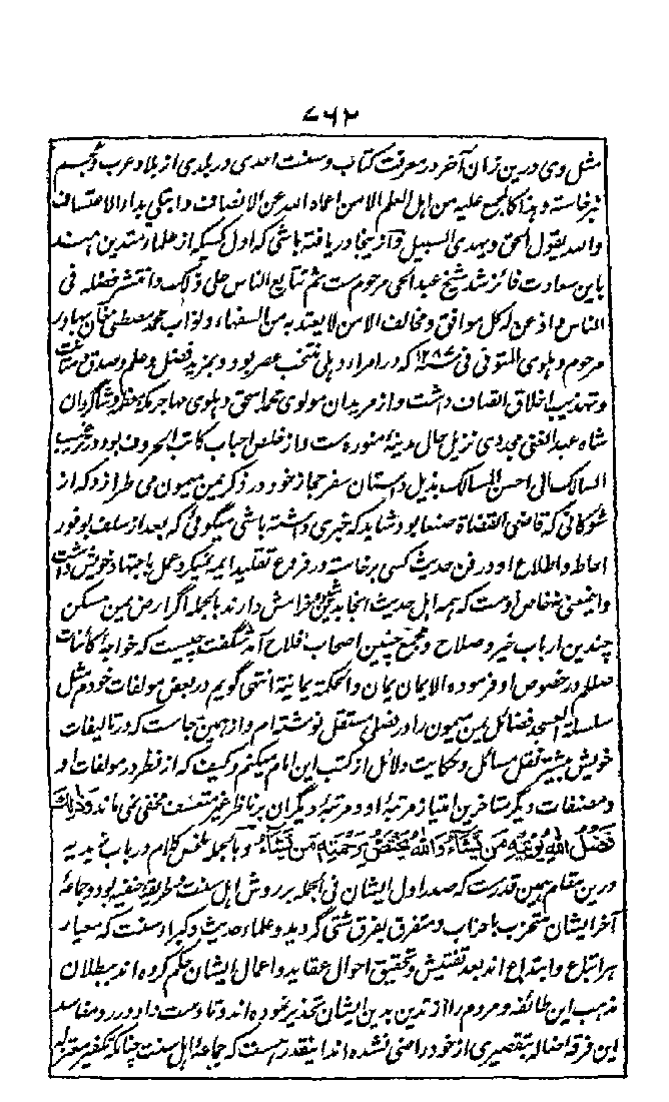 ۷۶۲
مثل وی درین زمان آخر در معرفت کتاب و سنت احدی در بلدی از بلاد عرب و عجم
برنخاسته و هذا کالمجمع علیه من اہل العلم الا من اعماه الله عن الانصاف وابتلی بداء الاعتساف
والله یقول الحق و یهدی السبیل و از ینجا دریافته باشی که اول کسیکه از علماء متدین هند
باین سعادت فائز شد شیخ عبد الحی مرحوم ست ثم تتابع الناس علی ذلک و انتشر فضله فی
الناس و اذعن له کل موافق و مخالف الا من لا یعتد به من السفهاء و نواب محمد مصطفی خان بهادر
مرحوم دہلوی المتوفی فی ۱۲۸۶ که در امراء دہلی منتخب عصر بود و بمزید فضل و علم و صدق
و تهذیب اخلاق اتصاف داشت و از مریدان مولوی محمد اسحق دہلوی مهاجر مکه معظمه و شاگردان
شاه عبد الغنی مجددی نزیل حال مدینهٔ منوره ست و از خلص احباب کاتب الحروف بود در ترغیب
السالک الی احسن المسالک بذیل داستان سفر حجاز خود در ذکر یمن میمون می طرازد که از
شوکانی که قاضی القضاة صنعا بود شاید که خبری داشته باشی میگوئی که بعد از سلف بوفور
احاطه و اطلاع او در فن حدیث کسی برنخاسته در فروع تقلید ایمه نمیکرد و عمل باجتهاد خویش داشت
و اینمعنی نه خاص اوست که همه اہل حدیث انجا بدینگونه خرامش دارند بالجمله اگر ارض یمن مسکن
چندین ارباب خیر و صلاح و مجمع چنین اصحاب فلاح آمد شگفت چیست که خواجهٔ کائنات
صللم در خصوص او فرموده الایمان یمان والحکمة یمانیة انتهی گویم در بعض مولفات خود مثل
سلسلة العسجد فضائل یمن میمون را در فصلی مستقل نوشته ام و از همین جاست که در تالیفات
خویش بیشتر نقل مسائل و حکایت دلائل از کتب این امام میکنم و کیف که از نظر در مولفات او
و مصنفات دیگر متاخرین امتیاز مرتبهٔ او و مرتبهٔ دیگران بر ناظر غیر متعسف مخفی نمی ماند وَذٰلِكَ
فَضْلُ اللهِ يُؤْتِيْهِ مَنْ يَّشَآءُ وَاللهُ يَخْتَصُّ بِرَحْمَتِهٖ مَنْ يَّشَآءُ و بالجمله ملخص کلام در باب زیدیه
درین مقام همین قدرست که صدر اول ایشان فی الجمله بر روش اہل سنت و طریقهٔ حنفیه بود و جماعهٔ
آخر ایشان متحزب باحزاب و متفرق بفرق شتی گردید و علماء حدیث و کبراء سنت که معیار
هر اتباع و ابتداع اند بعد تفتیش و تحقیق احوال عقاید و اعمال ایشان حکم کرده اند ببطلان
مذهب این طائفه و مردم را از تدین بدین ایشان تحذیر نموده اند و تا دست داد در رد مفاسد
این فرقهٔ ضاله بتقصیری از خود راضی نشده اند اینقدر هست که جماعهٔ اہل سنت چنانکه تکفیر معتزله